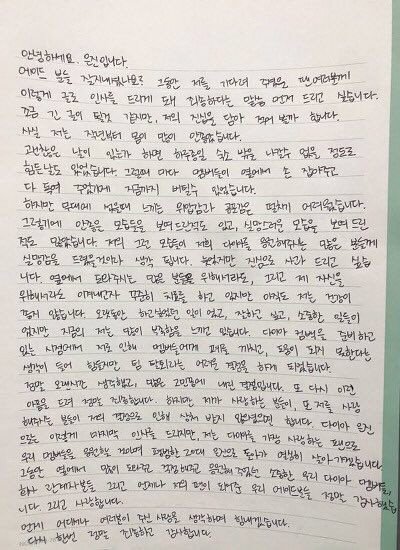 안녕하세요. 은진입니다.
에이드 분들 잘지내셨나요? 그동안 저를 기다려 주셨을 팬여러분께
이렇게 글로 인사를 드리게 돼 죄송하다는 말씀 먼저 드리고 싶습니다.
조금 긴 글이 될것 같지만, 저의 진심을 담아 적어 볼까 합니다.
사실 저는 작년부터 몸이 많이 안좋았습니다.
괜찮은 날이 있는가 하면 하루종일 숙소 밖을 나갈수 없을 정도로
힘든날도 있었습니다. 그럴때 마다 멤버들이 옆에서 손 잡아주고
다 독여 주었기에 지금까지 버틸수 있었습니다.
하지만 무대에 섰을때 느끼는 위압감과 공포감은 떨치기 어려웠습니다.
그렇기에 안좋은 모습들을 보여드린적도 있고, 실망스러운 모습을 보여 드린
적도 많았습니다. 저의 그런 모습이 저희 다이아를 응원해주시는 많은 분들께
실망감을 드렸을거이라 생각 됩니다. 늦었지만 진심으로 사과 드리고 싶습
니다. 옆에서 도와주시는 많은 분들을 위해서라도, 그리고 제 자신을
위해서라도 이겨내고자 꾸준히 치료를 하고 있지만 아직도 저는 건강이
좋지 않습니다. 오랫동안 하고싶었던 일이 었고, 잘하고 싶고, 소중한 일들이
었지만 지금의 저는 많이 부족함을 느끼고 있습니다. 다이아 컴백을 준비 하고
있는 시점에서 저로 인해 멤버들에게 폐를 끼치고, 도움이 되지 못한다는
생각이 들어 힘들지만 팀 탈퇴라는 어려운 결정을 하게 되었습니다.
정말 오래시간 생각했고, 많은 고민끝에 내린 결정입니다. 또 다시 이런
아픔을 드려 정말 죄송합니다. 하지만 제가 사랑하는 분들이, 또 저를 사랑
해주시는 분들이 저의 결정으로 인해 상처 받지 않았으면 합니다. 다이아 은진
으로는 이렇게 마지막 인사를 드리지만, 저는 다이아를 가장 사랑하는 팬으로
우리 멤버들을 응원할 것이며 평범한 20대 은진으로 돌아가 열심히 살아가겠습니다.
그동안 옆에서 많이 도와주고 걱정해주고 응원해주었던 소중한 우리 다이아 멤버들과
회사 관계자분들 그리고 언제나 저의 편이 되어준 우리 에이드분들 정말 감사했습
니다 그리고 사랑합니다.
언제 어디에서나 여러분이 주신 사랑을 생각하며 힘내겠습니다.
다시 한번 정말 죄송하고 감사합니다.